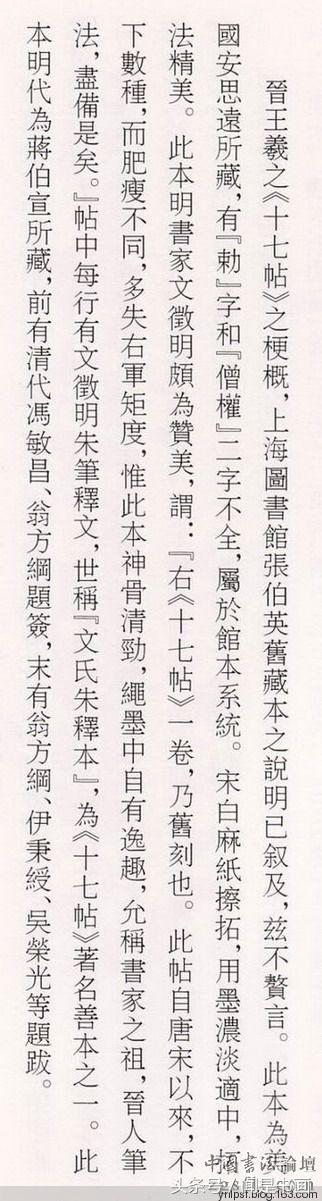 晉王羲之《十七帖》之梗概，上海圖書館張伯英舊藏本之說明已叙及，兹不贅言。此本為美
國安思遠所藏，有『勅』字和『僧權』二字不全，屬於館本系統。宋白麻紙擦拓，用墨濃淡適中，
法精美。此本明書家文徵明頗為贊美，謂：『右《十七帖》一卷，乃舊刻也。此帖自唐宋以來，不
下數種，而肥瘦不同，多失右軍矩度，惟此本神骨清勁，繩墨中自有逸趣，允稱書家之祖，晉人筆
法，盡備是矣。』帖中每行有文徵明朱筆釋文，世稱『文氏朱釋本』，為《十七帖》著名善本之一。此
本明代為蔣伯宣所藏，前有清代馮敏昌、翁方綱題簽，末有翁方綱、伊秉綬、吳榮光等題跋。
中國書法論壇
ynlpsf.blog.163.com